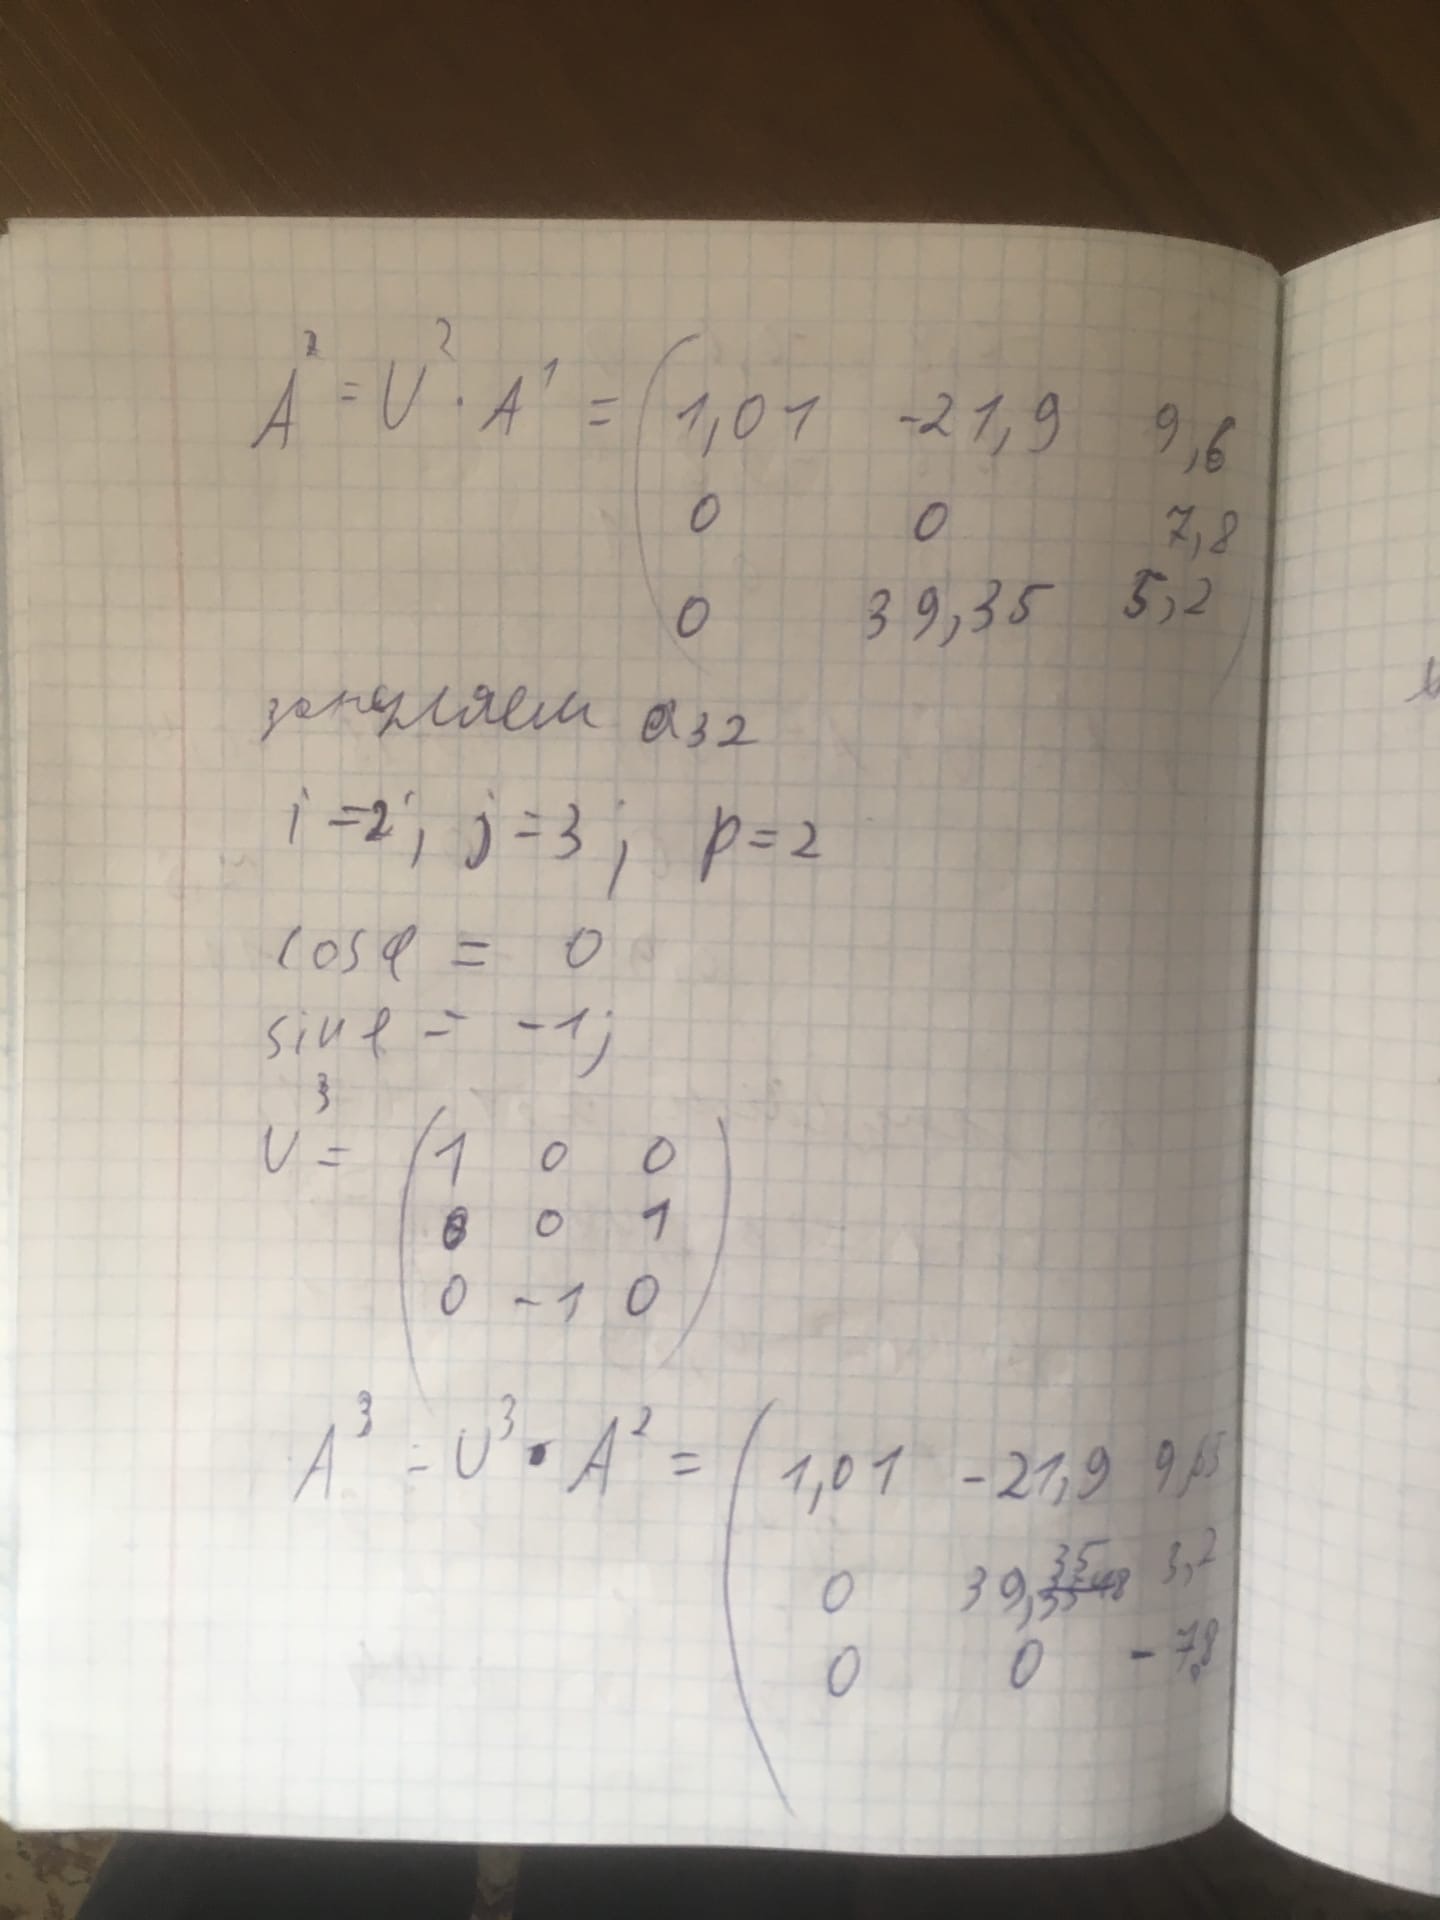 A² = U² · A¹ = ( 1,01 -21,9 9,6
0 0 7,8
0 39,35 5,2 )
зануляем a₃₂
i=2; j=3; p=2
cosφ = 0
sinφ = -1;
U³ = ( 1 0 0
0 0 1
0 -1 0 )
A³ = U³ · A² = ( 1,01 -21,9 9,65
0 39,35 3,2
0 0 -7,8